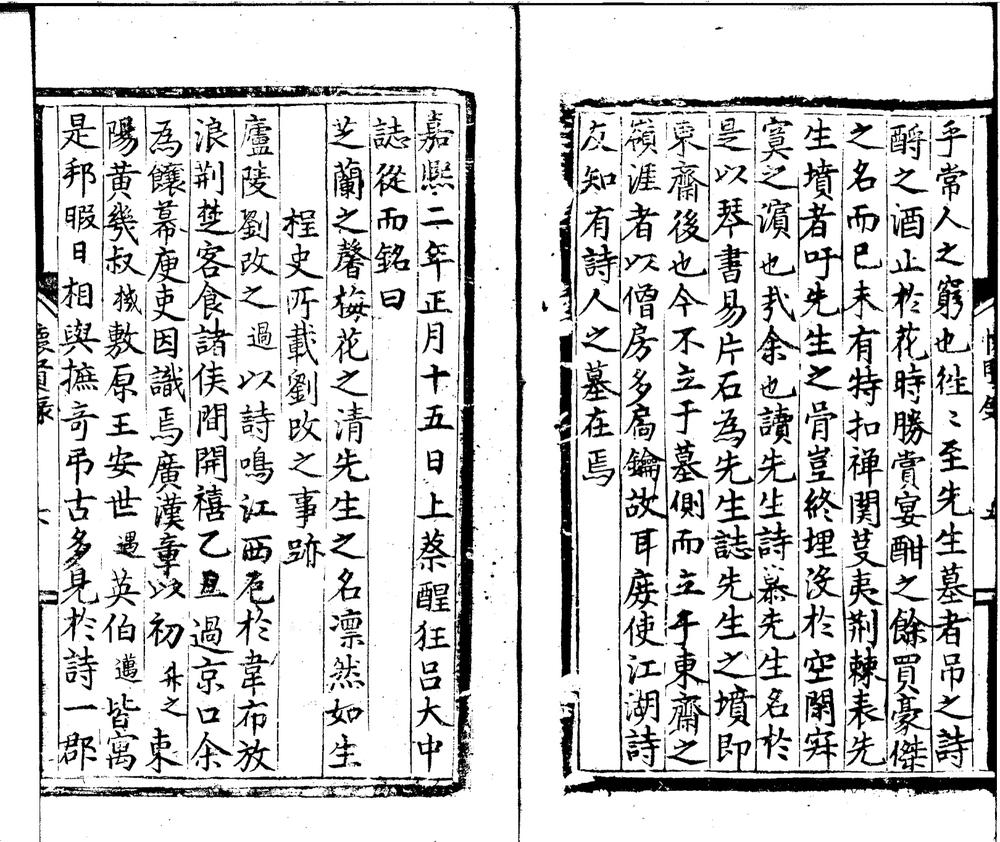 乎常人之窮也徃〻至先生墓者吊之詩
酹之酒止於花時勝賞宴酣之餘買豪傑
之名而已未有特扣禅関芟夷荆棘表先
生墳者吁先生之骨豈終埋没於空閑寂
寞之濵也㢤余也讀先生詩慕先生名於
是以琴書易片石為先生誌先生之墳即
東齋後也今不立于墓側而立乎東齋之
嶺涯者以僧房多扄鑰故耳庻使江湖詩
友知有詩人之墓在焉
嘉熈二年正月十五日上蔡醒狂吕大中
誌從而銘曰
芝蘭之馨梅花之清先生之名凛然如生
桯史所載劉改之事跡
廬陵劉改之過以詩鳴江西厄於韋布放
浪荆楚客食諸侯間開禧乙丑過京口余
為饟幕庾吏因識焉廣漢章以初升之東
陽黄幾叔機敷原王安世遇英伯邁皆寓
是邦暇日相與摭奇吊古多見於詩一郡
懷賢录
六